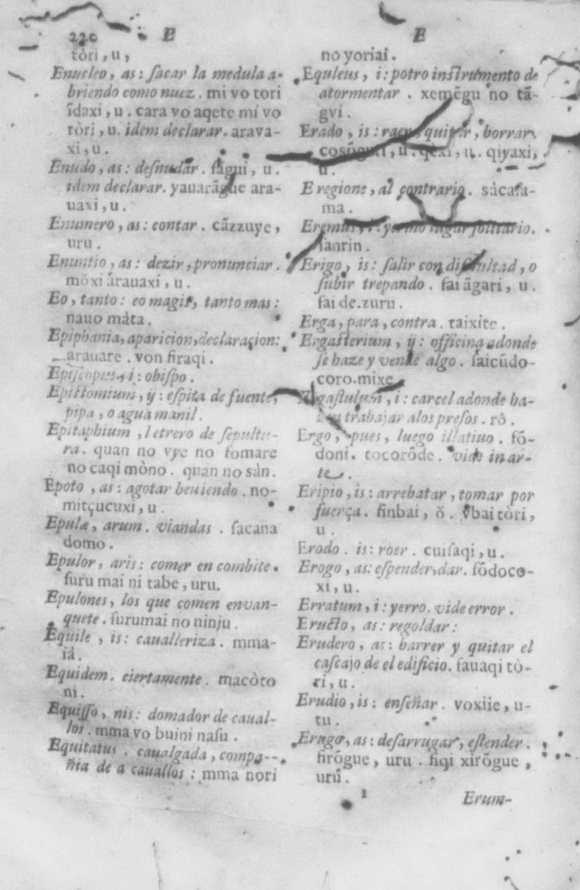 220 E
tòri, u,
Enucleo, as: sacar la medula a-
briendo como nuez. mi vo tori
ĩdaxi, u. cara vo aqete mi vo
tòri, u. idem declarar. arava-
xi, u.
Enudo, as: desnudar. u.
idem declarar. yauarãgue ara-
uaxi, u.
Enumero, as: contar. cãzzuye,
uru.
Enuntio, as: dezir, pronunciar.
mòxi árauaxi, u.
Eo, tanto: eo magis, tanto mas:
nauo máta.
Epiphania, aparicion, declaracion:
arauare. von firaqi.
Episcopus, i: obispo.
Epistomium, ij: espita de fuente,
pipa, o aguamanil.
Epitaphium, letrero de sepultu-
ra. quan no vye no fomare
no caqi mòno. quan no sàn.
Epoto, as: agotar beuiendo. no-
mitçucuxi, u.
Epulæ, arum. viandas. sacana
domo.
Epulor, aris: comer en combite.
furu mai ni tabe, uru.
Epulones, los que comen en van-
quete. furumai no ninju.
Equile, is: caualleriza. mma-
iá.
Equidem. ciertamente. macòto
ni.
Equisso, nis: domador de caual-
los. mma vo buini nasu.
Equitatus. caualgada, compa--
ñia de a cauallos: mma nori
E
no yoriai.
Equleus, i: potro instrumento de
atormentar. xemẽgu no tã-
gvi.
Erado, is: raer, quitar, borrar.
u. qexi, u. qiyaxi,
u.
E regione, al contrario. sàcasa-
ma.
Eremus, i: yermo lugar solitario.
sanrin.
Erigo, is: salir con dificultad, o
subir trepando. sai ãgari, u.
sai de.zuru.
Erga, para, contra. taixite.
Ergasterium, ij: officina adonde
se haze y vende algo. saicũdo-
coro.mixe.
Ergastulum, i: carcel adonde ha-
zen trabajar a los presos. rô.
Ergo, pues, luego illatiuo. sõ-
doni. tocorõde. vide in ar-
te.
Eripio, is: arrebatar, tomar por
fuerça. finbai, ŏ. vbai tòri,
u.
Erodo. is: roer. cuisaqi, u.
Erogo, as: espender, dar. fõdoco-
xi, u.
Erratum, i: yerro. vide error.
Eructo, as: regoldar:
Erudero, as: barrer y quitar el
cascajo de el edificio. sauaqi tò-
ri, u.
Erudio, is: enseñar. voxiie, u-
ru.
Erugo, as: desarrugar, estender.
firõgue, uru. fiqi xirõgue,
urũ.
1
Erum-